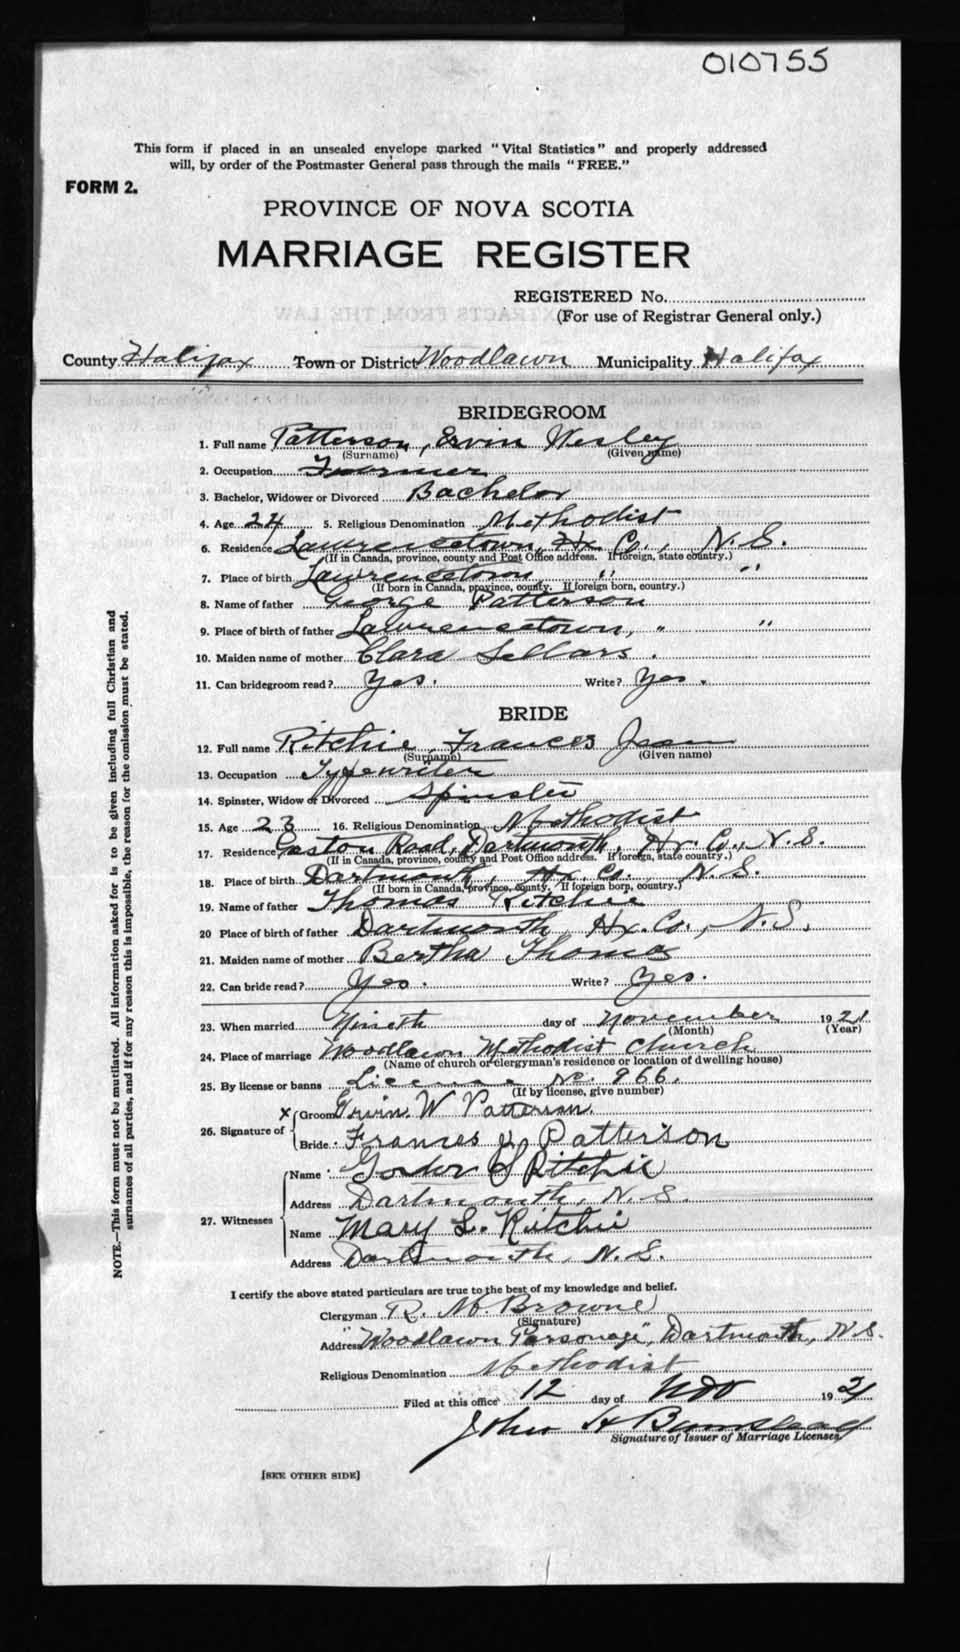 010755
This form if placed in an unsealed envelope marked "Vital Statistics" and properly addressed
will, by order of the Postmaster General pass through the mails "FREE."
FORM 2.
PROVINCE OF NOVA SCOTIA
MARRIAGE REGISTER
REGISTERED No.
(For use of Registrar General only.)
County Halifax Town or District Woodlawn Municipality Halifax
BRIDEGROOM
1. Full name Patterson, Ervin Wesley
(Surname) (Given name)
2. Occupation Farmer
3. Bachelor, Widower or Divorced Bachelor
4. Age 24 5. Religious Denomination Methodist
6. Residence Lawrencetown, Hx. Co., N.S.
(If in Canada, province, county and Post Office address. If foreign, state country.)
7. Place of birth Lawrencetown " "
(If born in Canada, province, county. If foreign born, country.)
8. Name of father George Patterson
9. Place of birth of father Lawrencetown, " "
10. Maiden name of mother Clara Sellars.
11. Can bridegroom read? Yes. Write? Yes.
BRIDE
12. Full name Ritchie, Frances Jean
(Surname) (Given name)
13. Occupation Typewriter
14. Spinster, Widow or Divorced Spinster
15. Age 23 16. Religious Denomination Methodist
17. Residence Gaston Road, Dartmouth, Hx. Co., N.S.
(If in Canada, province, county and Post Office address. If foreign, state country.)
18. Place of birth Dartmouth, Hx. Co., N.S.
(If born in Canada, province, county. If foreign born, country.)
19. Name of father Thomas Ritchie
20 Place of birth of father Dartmouth, Hx. Co., N.S.
21. Maiden name of mother Bertha Thomas
22. Can bride read? Yes. Write? Yes.
23. When married Nineth day of November 1921
(Month) (Year)
24. Place of marriage Woodlawn Methodist Church
(Name of church or clergyman's residence or location of dwelling house)
25. By license or banns License No. 966.
(If by license, give number)
26. Signature of x Groom Ervin. W Patterson.
Bride. Frances J. Patterson
27. Witnesses Name Gordon Ritchie
Address Dartmouth, N.S.
Name Mary L. Ritchie
Address Dartmouth, N.S.
I certify the above stated particulars are true to the best of my knowledge and belief.
Clergyman R. M. Browne
(Signature)
Address "Woodlawn Parsonage", Dartmouth, N.S.
Religious Denomination Methodist
Filed at this office 12 day of Nov 1921
John H Bumstead
Signature of Issuer of Marriage Licenses
[SEE OTHER SIDE]
NOTE.—This form must not be mutilated. All information asked for is to be given including full Christian and
surnames of all parties, and if for any reason this is impossible, the reason for the omission must be stated.